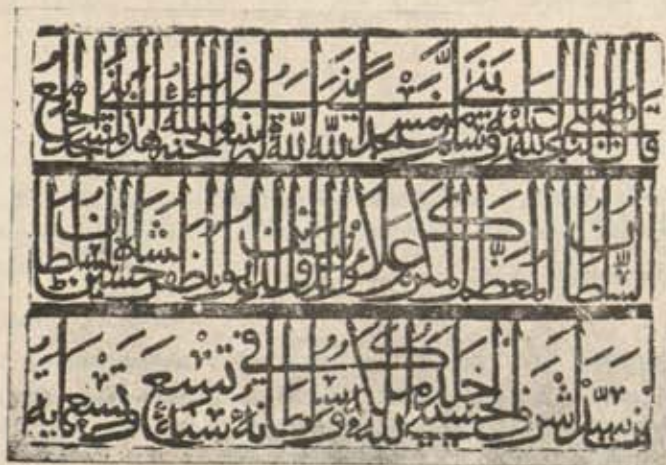 قال النبي صلى الله عليه وسلم من بنى مسجدا لله بنى الله له في الجنة بنى هذا المسجد الجامع
السلطان المعظم المكرم علاء الدنيا والدين ابو المظفر حسين شاه السلطان
بن سيد اشرف الحسيني خلد الله ملكه وسلطانه في سنة تسع وتسعماية